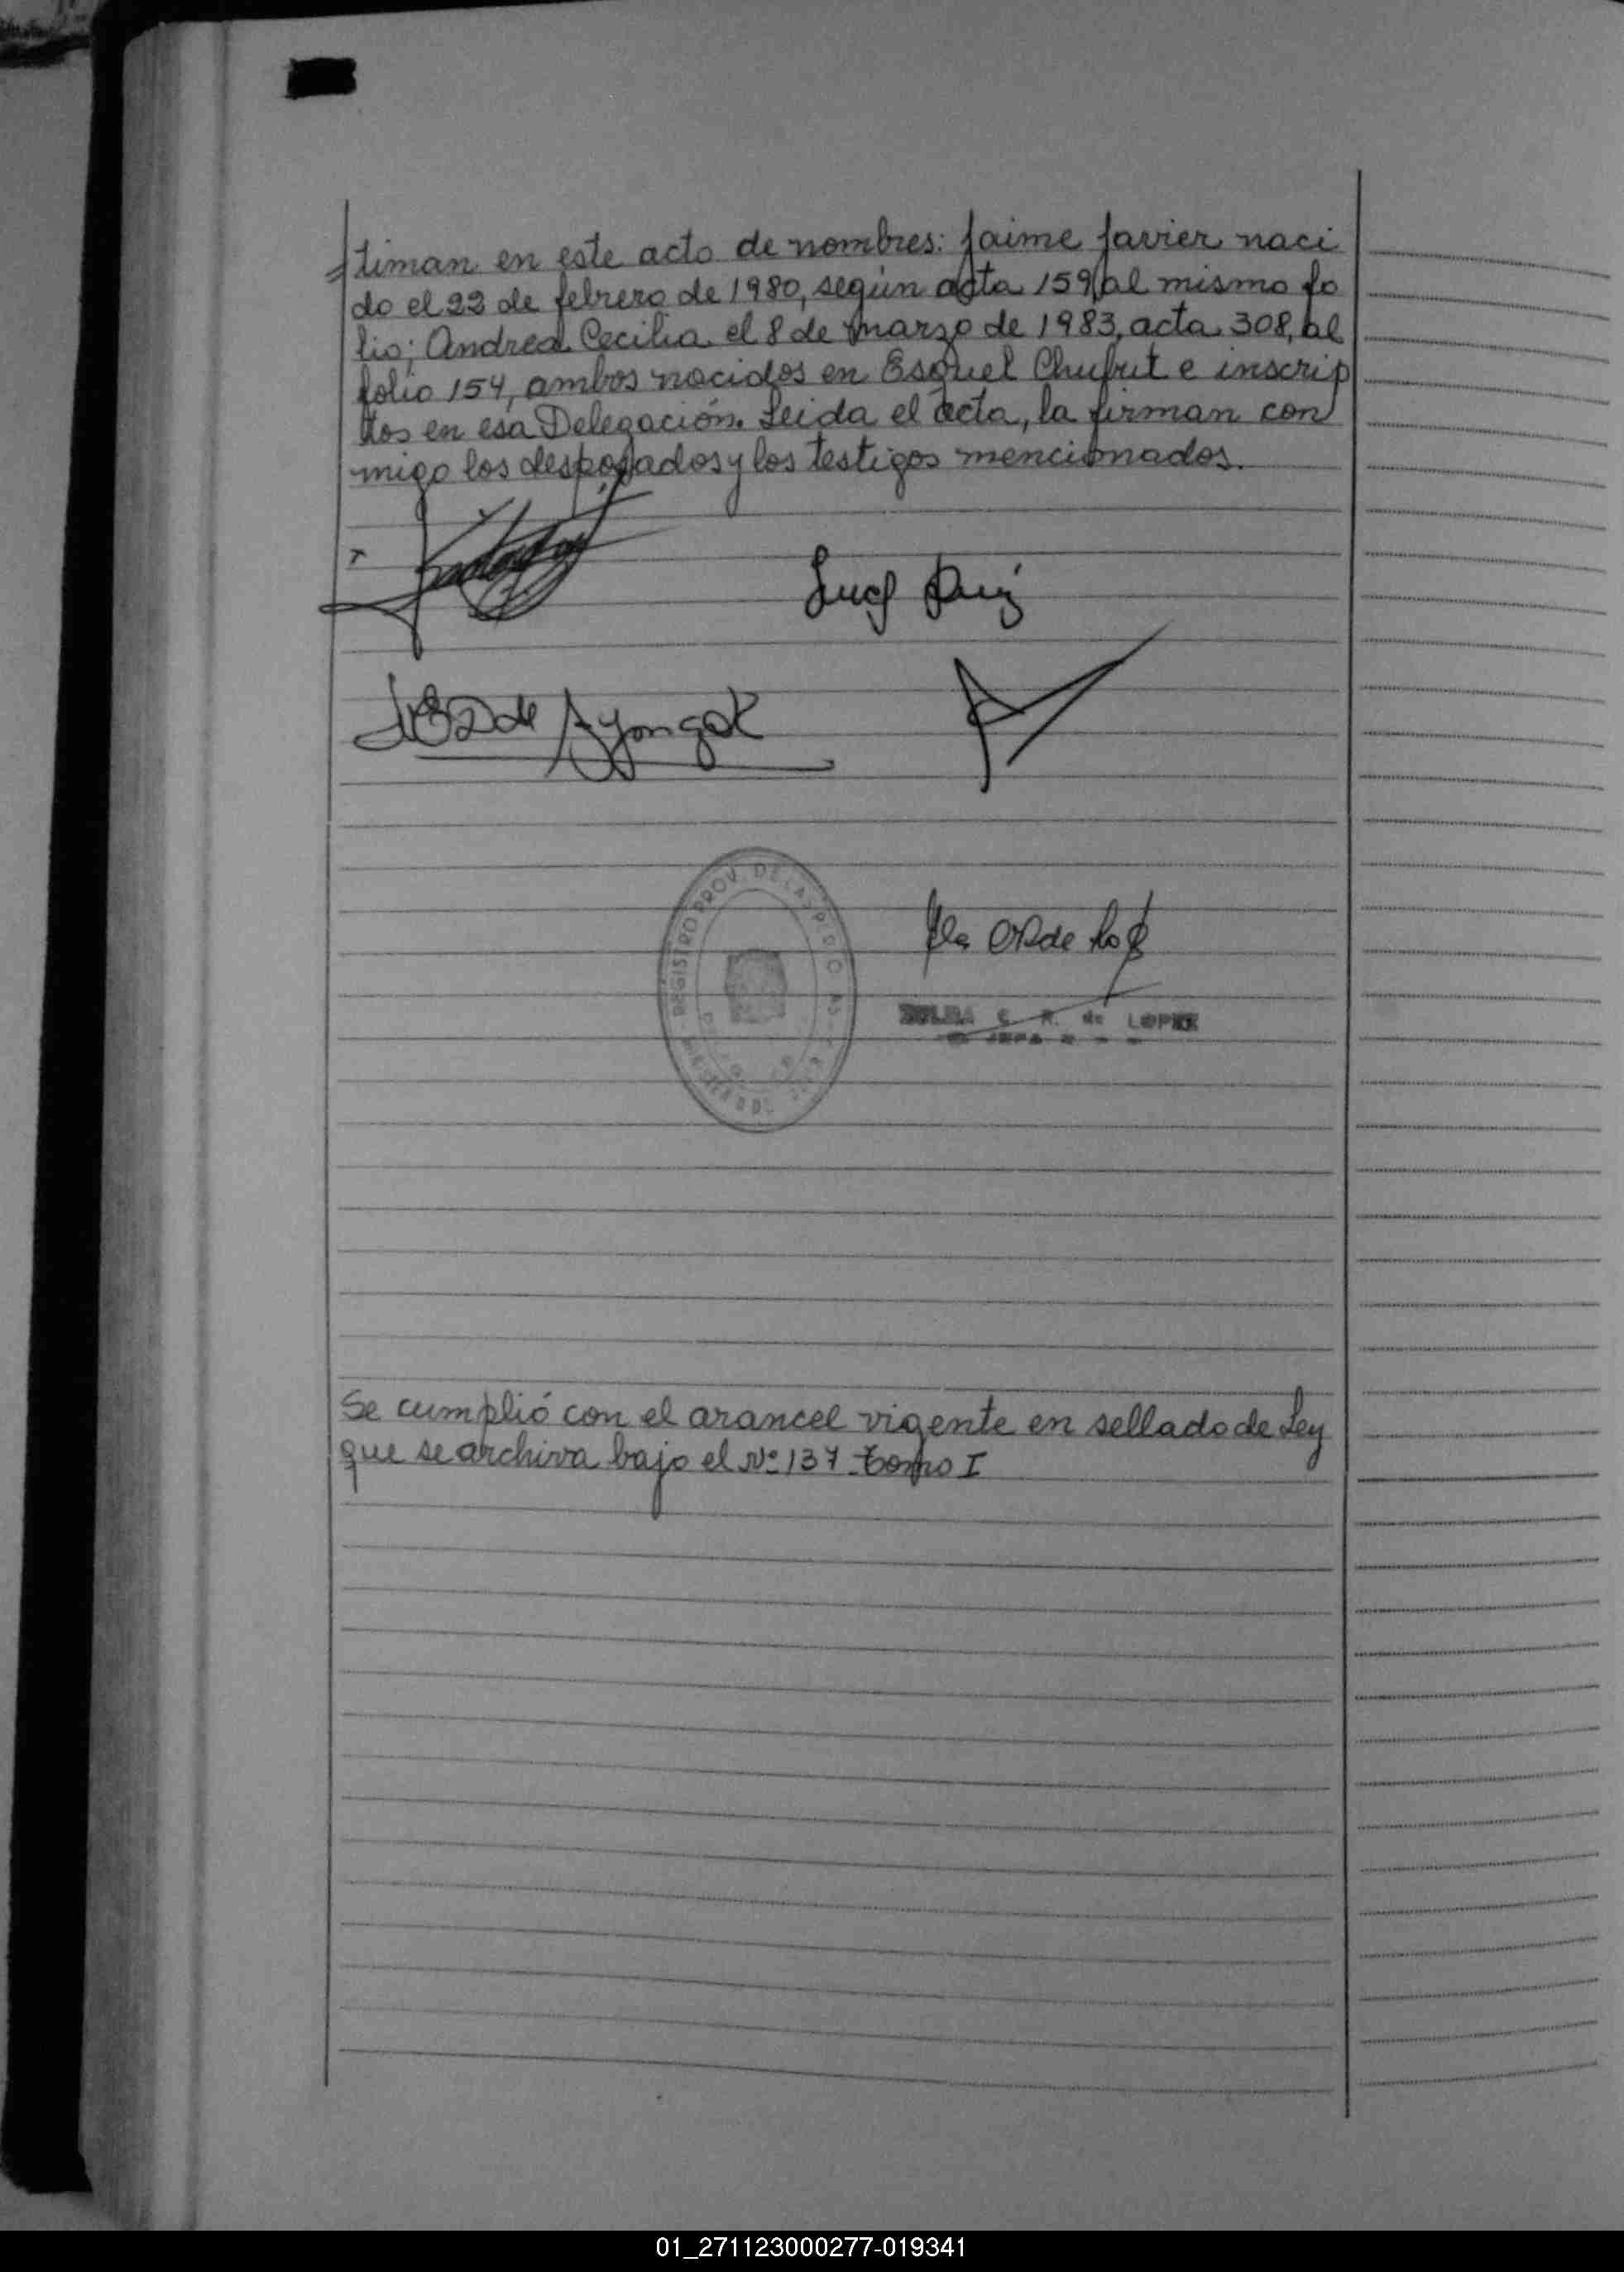 =timan en este acto de nombres: Jaime Javier naci
do el 22 de febrero de 1980, según acta 159, al mismo fo
lio; Andrea Cecilia el 8 de marzo de 1983, acta 308, al
folio 154, ambos nacidos en Esquel Chubut e inscrip
tos en esa Delegación. Leida el acta, la firman con
migo los desposados y los testigos mencionados.
de
REGISTRO PROV. DE LAS
C. R. de LOPEZ
JEFA
Se cumplió con el arancel vigente en sellado de Ley
que se archiva bajo el Nº 137 Tomo I
01_271123000277-019341